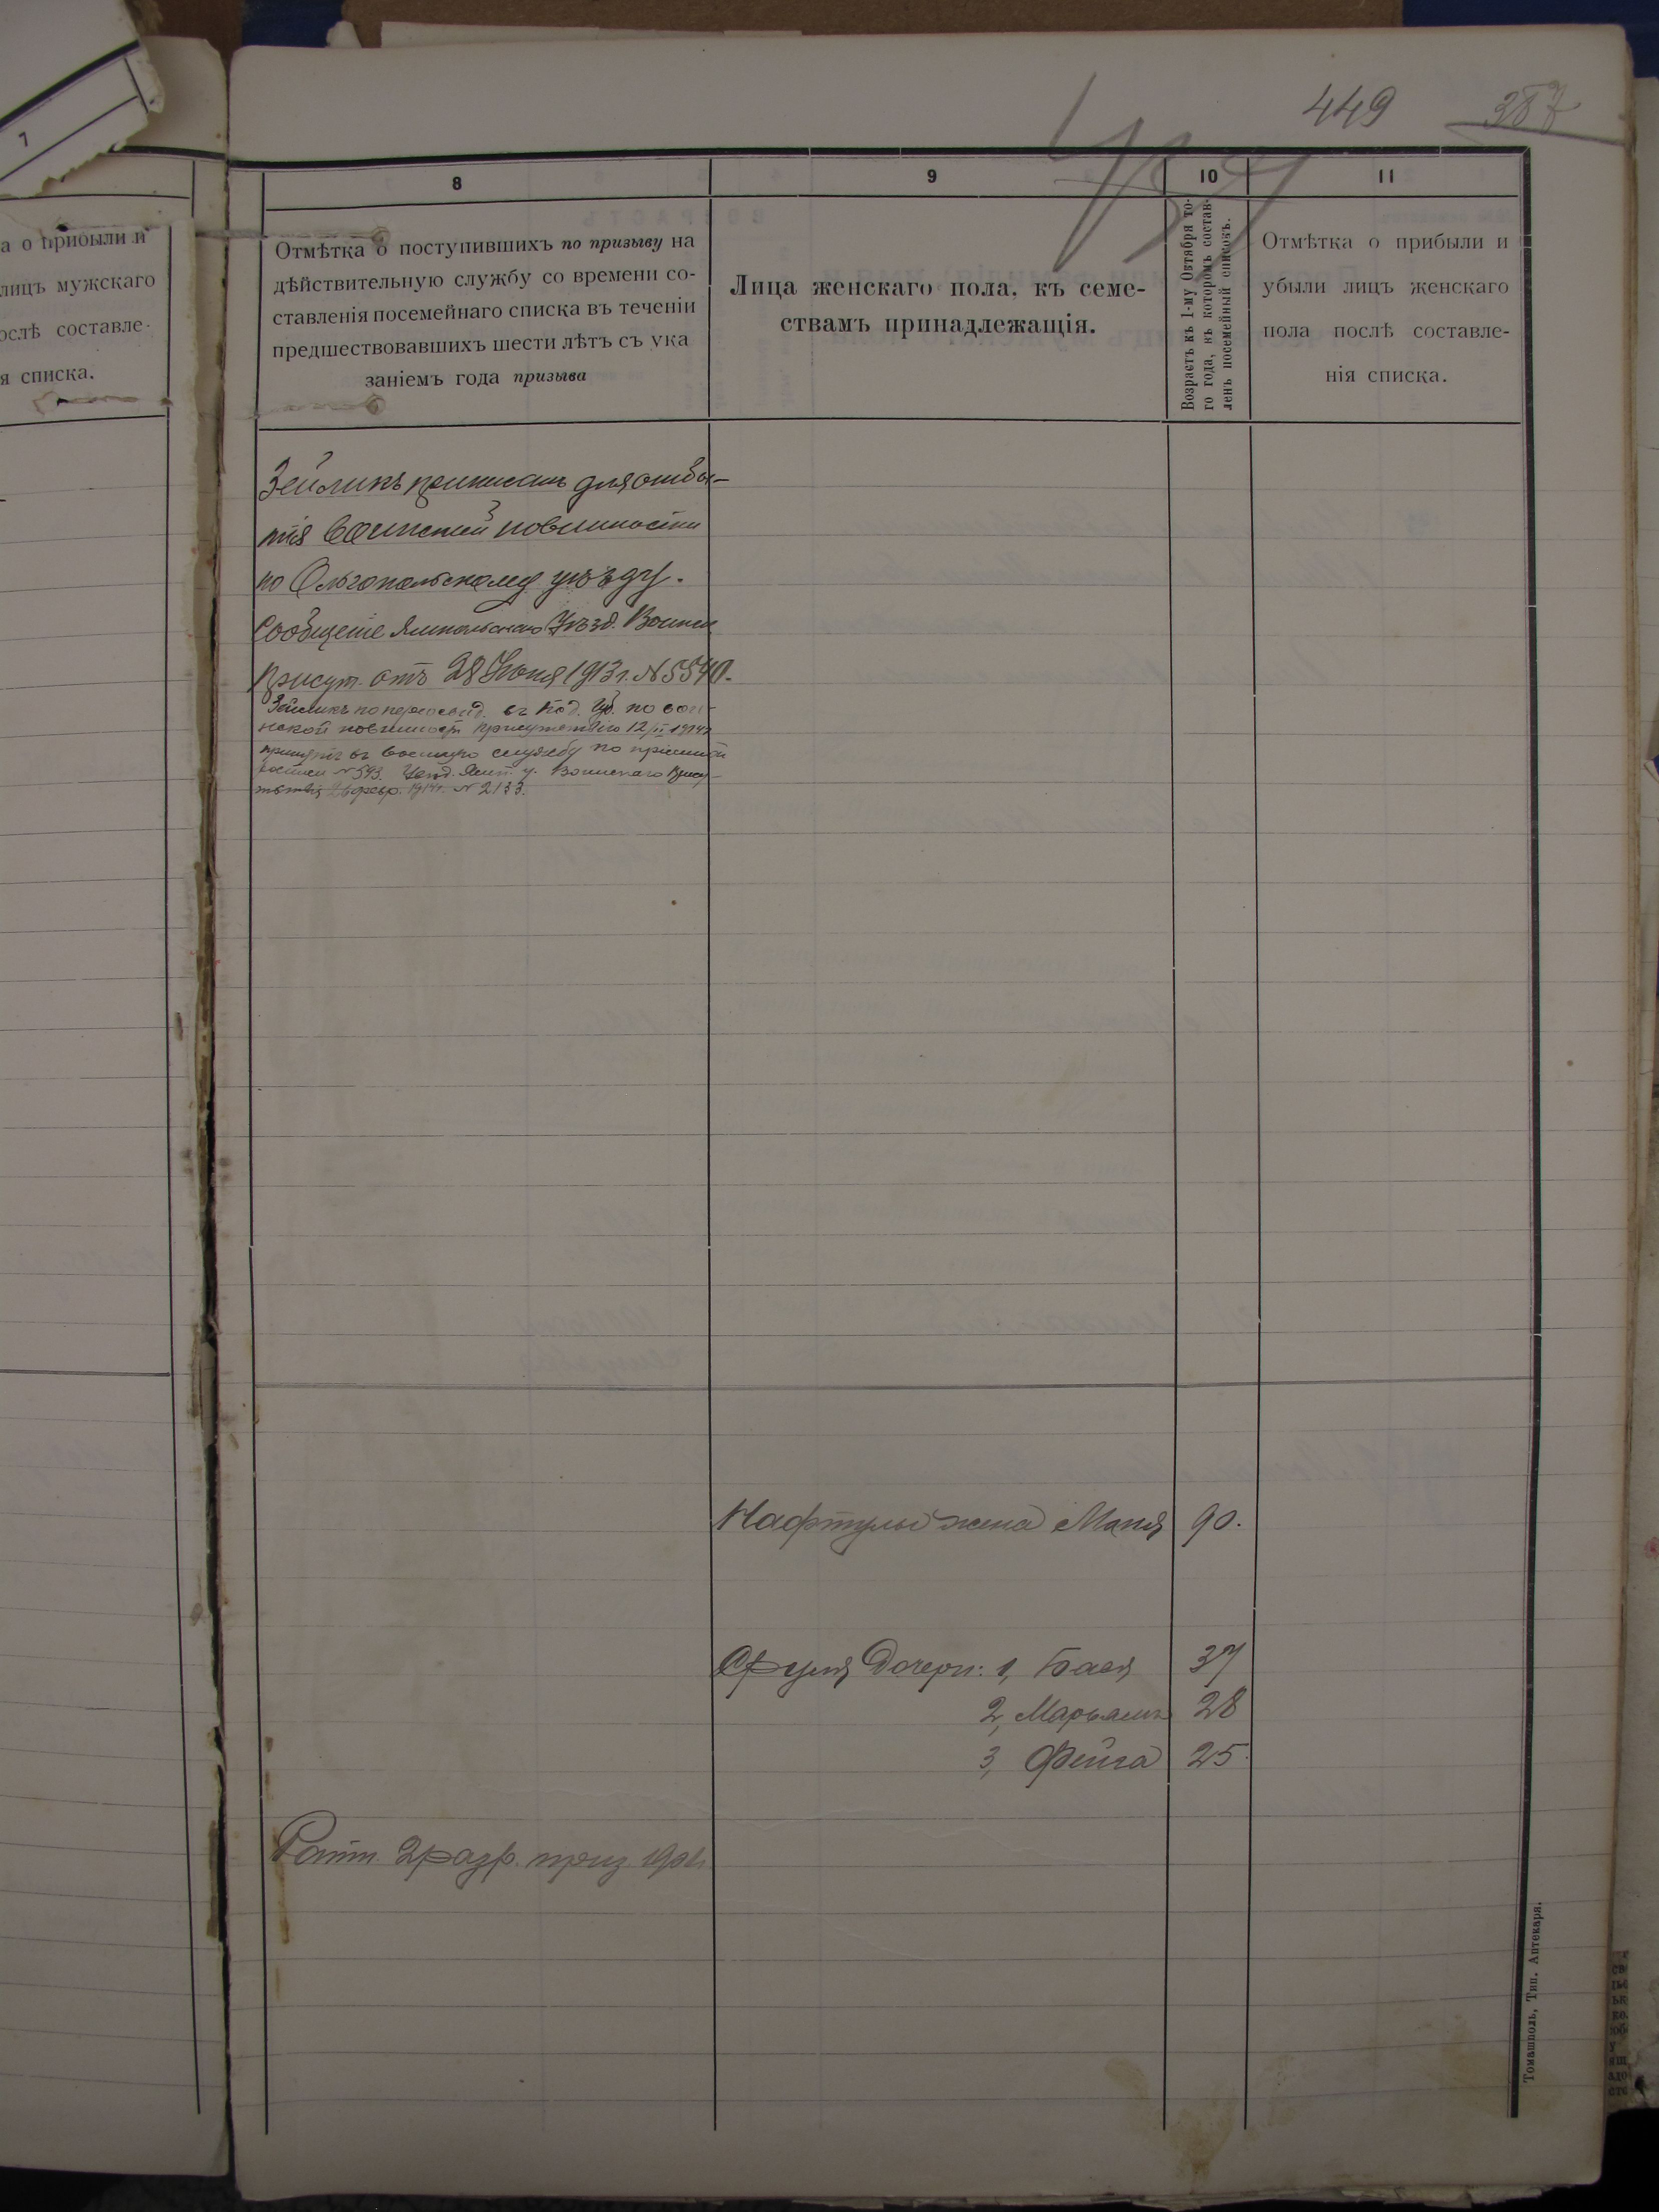 449 387
7
8 9 10 11
а о прибыли и
лицъ мужскаго
ослѣ составле-
я списка.
Отмѣтка о поступившихъ по призыву на
дѣйствительную службу со времени со-
ставленія посемейнаго списка въ теченіи
предшествовавшихъ шести лѣтъ съ ука
заніемъ года призыва
Лица женскаго пола, къ семе-
ствамъ принадлежащія.
Возрастъ къ 1-му Октября то-
го года, въ которомъ состав-
ленъ посемейный списокъ.
Отмѣтка о прибыли и
убыли лицъ женскаго
пола послѣ составле-
нія списка.
Зейликъ приписанъ для отбы-
тія воинской повинности
по Ольгопольскому уѣзду.
Сообщеніе Ямпольскаго Уѣзд. Воинск
Присут. отъ 28 Іюня 1913 г. № 5540.
Зейликъ по переосвид. въ Под. Губ. по воин-
ской повинност присутствію 12/II 1914 г
принятъ въ военную службу по пріемной
росписи № 593. Увѣд. Ямп. у. Воинскаго Прису-
тствія 26 февр. 1914 г. № 2133.
Нафтулы жена Маня 90.
Сруля Дочери: 1, Бася 37
2, Марьямъ 28
3, Фейга 25
Ратн. 2 разр. приз 1901
Томашполь, Тип. Аптекаря.